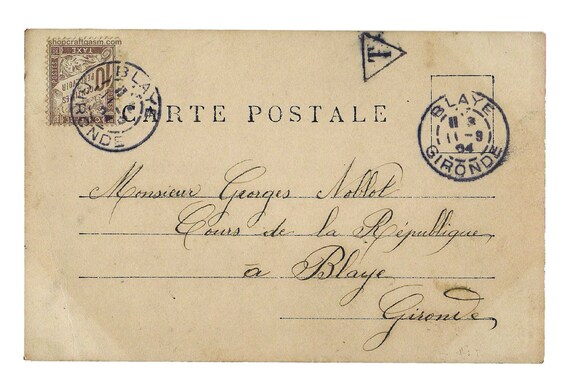 shopcraftgasm.com
TAXE
10
BLAYE
GIRONDE
T
CARTE POSTALE
BLAYE
11 - 9
04
GIRONDE
Monsieur Georges Noblot
Cours de la République
à Blaye
Gironde